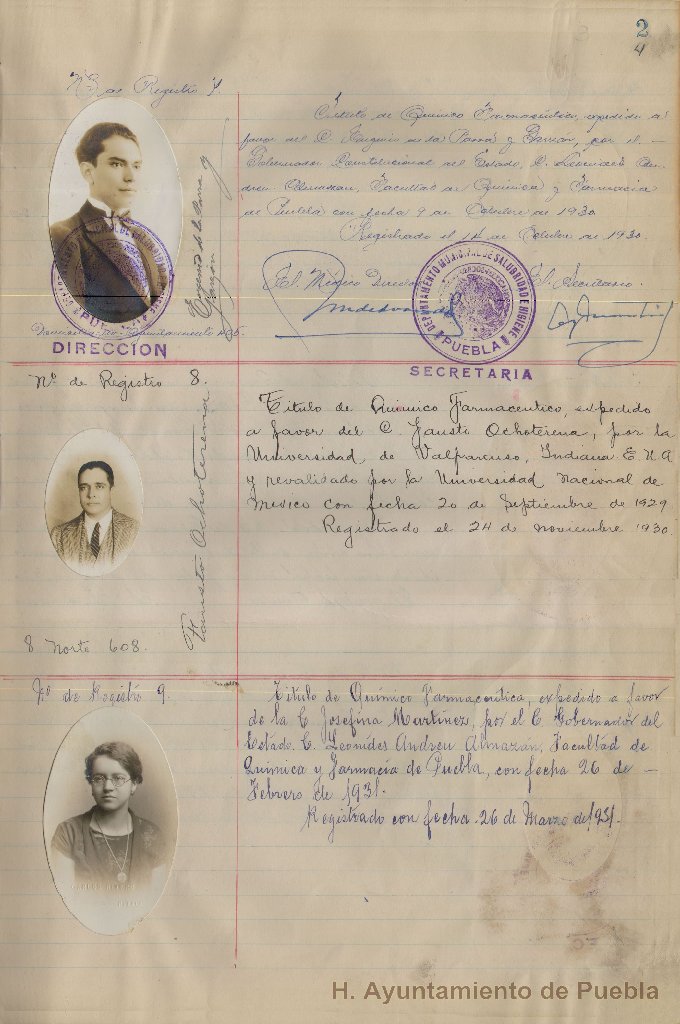 2
4
Nº de Registro 7.
Título de Químico Farmacéutico, expedido a
favor del C. Eugenio de la Parra y Garzón, por el. -
Gobernador Constitucional del Estado, C. Leonides An-
dreu Almazan, Facultad de Química y Farmacia
de Puebla con fecha 9 de Octubre de 1930.
Registrado el 14 de Octubre de 1930.
Eugenio de la Parra y
Garzón
El Médico Director
El Secretario
DEPARTAMENTO MUNICIPAL DE SALUBRIDAD E HIGIENE
PUEBLA
SECRETARIA
DIRECCION
Nº de Registro 8.
Fausto Ochoterena
Titulo de Quimico Farmaceutico, expedido
a favor del C. Fausto Ochoterena, por la
Universidad de Valparauso, Indiana E.U.A
y revalidado por la Universidad Nacional de
Mexico con fecha 20 de Septiembre de 1929
Registrado el 24 de Noviembre 1930
8 Norte 608.
Nº de Registro 9.
Titulo de Químico Farmaceutica, expedido a favor
de la C. Josefina Martinez, por el C. Gobernador del
Estado. C. Leonides Andreu Almazán, Facultad de
Quimica y Farmacia de Puebla, con fecha 26 de -
Febrero de 1931.
Registrado con fecha 26 de Marzo de 1931.
H. Ayuntamiento de Puebla